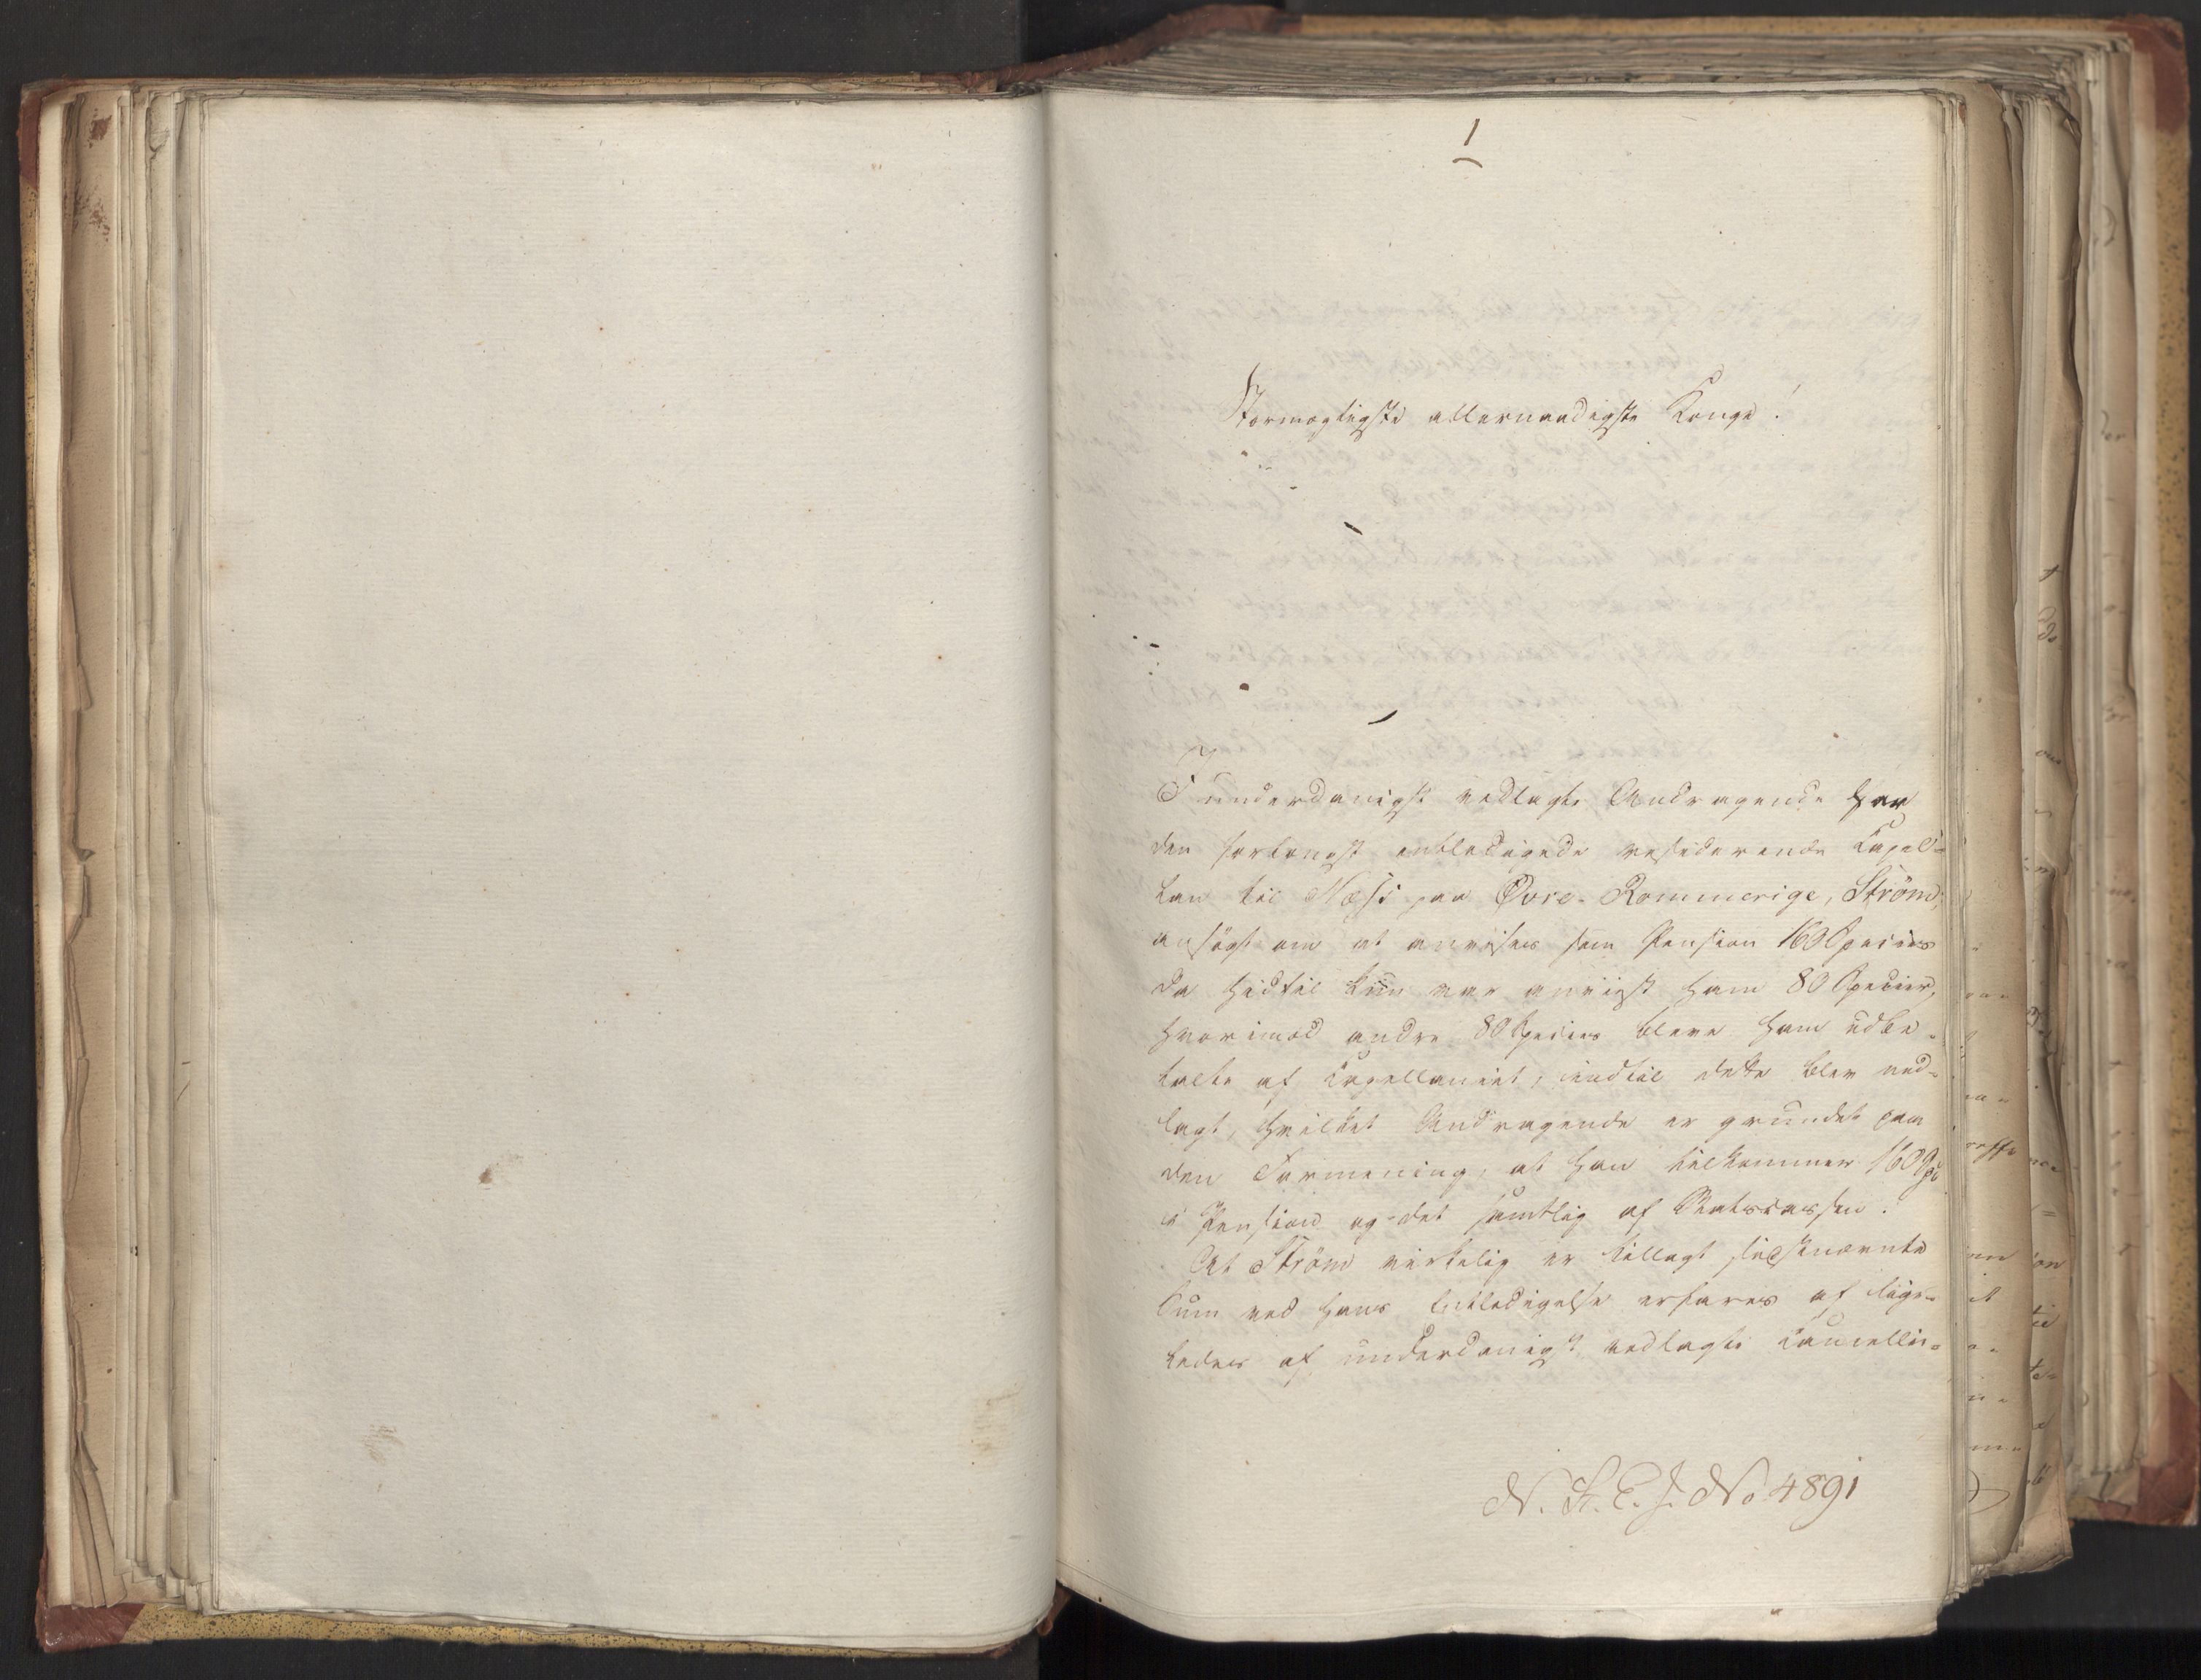 1
Stormægtigste allernaadigste Konge!
I underdanigst vedlagte Andragende har
den forlængst entledigede residerende Capel-
lan til Næss paa Øvre-Rommerige, Strøm,
ansøgt om at anvises som Pension 160 Species
da hidtil kun var anviist ham 80 Species,
hvorimod andre 80 Species bleve ham udbe-
talte af Capellaniet, indtil dette blev ned-
lagt, hvilket Andragende er grundet paa
den Formening, at han tilkommer 160 Sp
i Pension og det samtlig af Statscassen.
At Strøm virkelig er tillagt sidstnævnte
Sum ved hans Entledigelse erfares af lige-
ledes af underdanigst vedlagte Cancellie-
N. St. E. J. No 4891